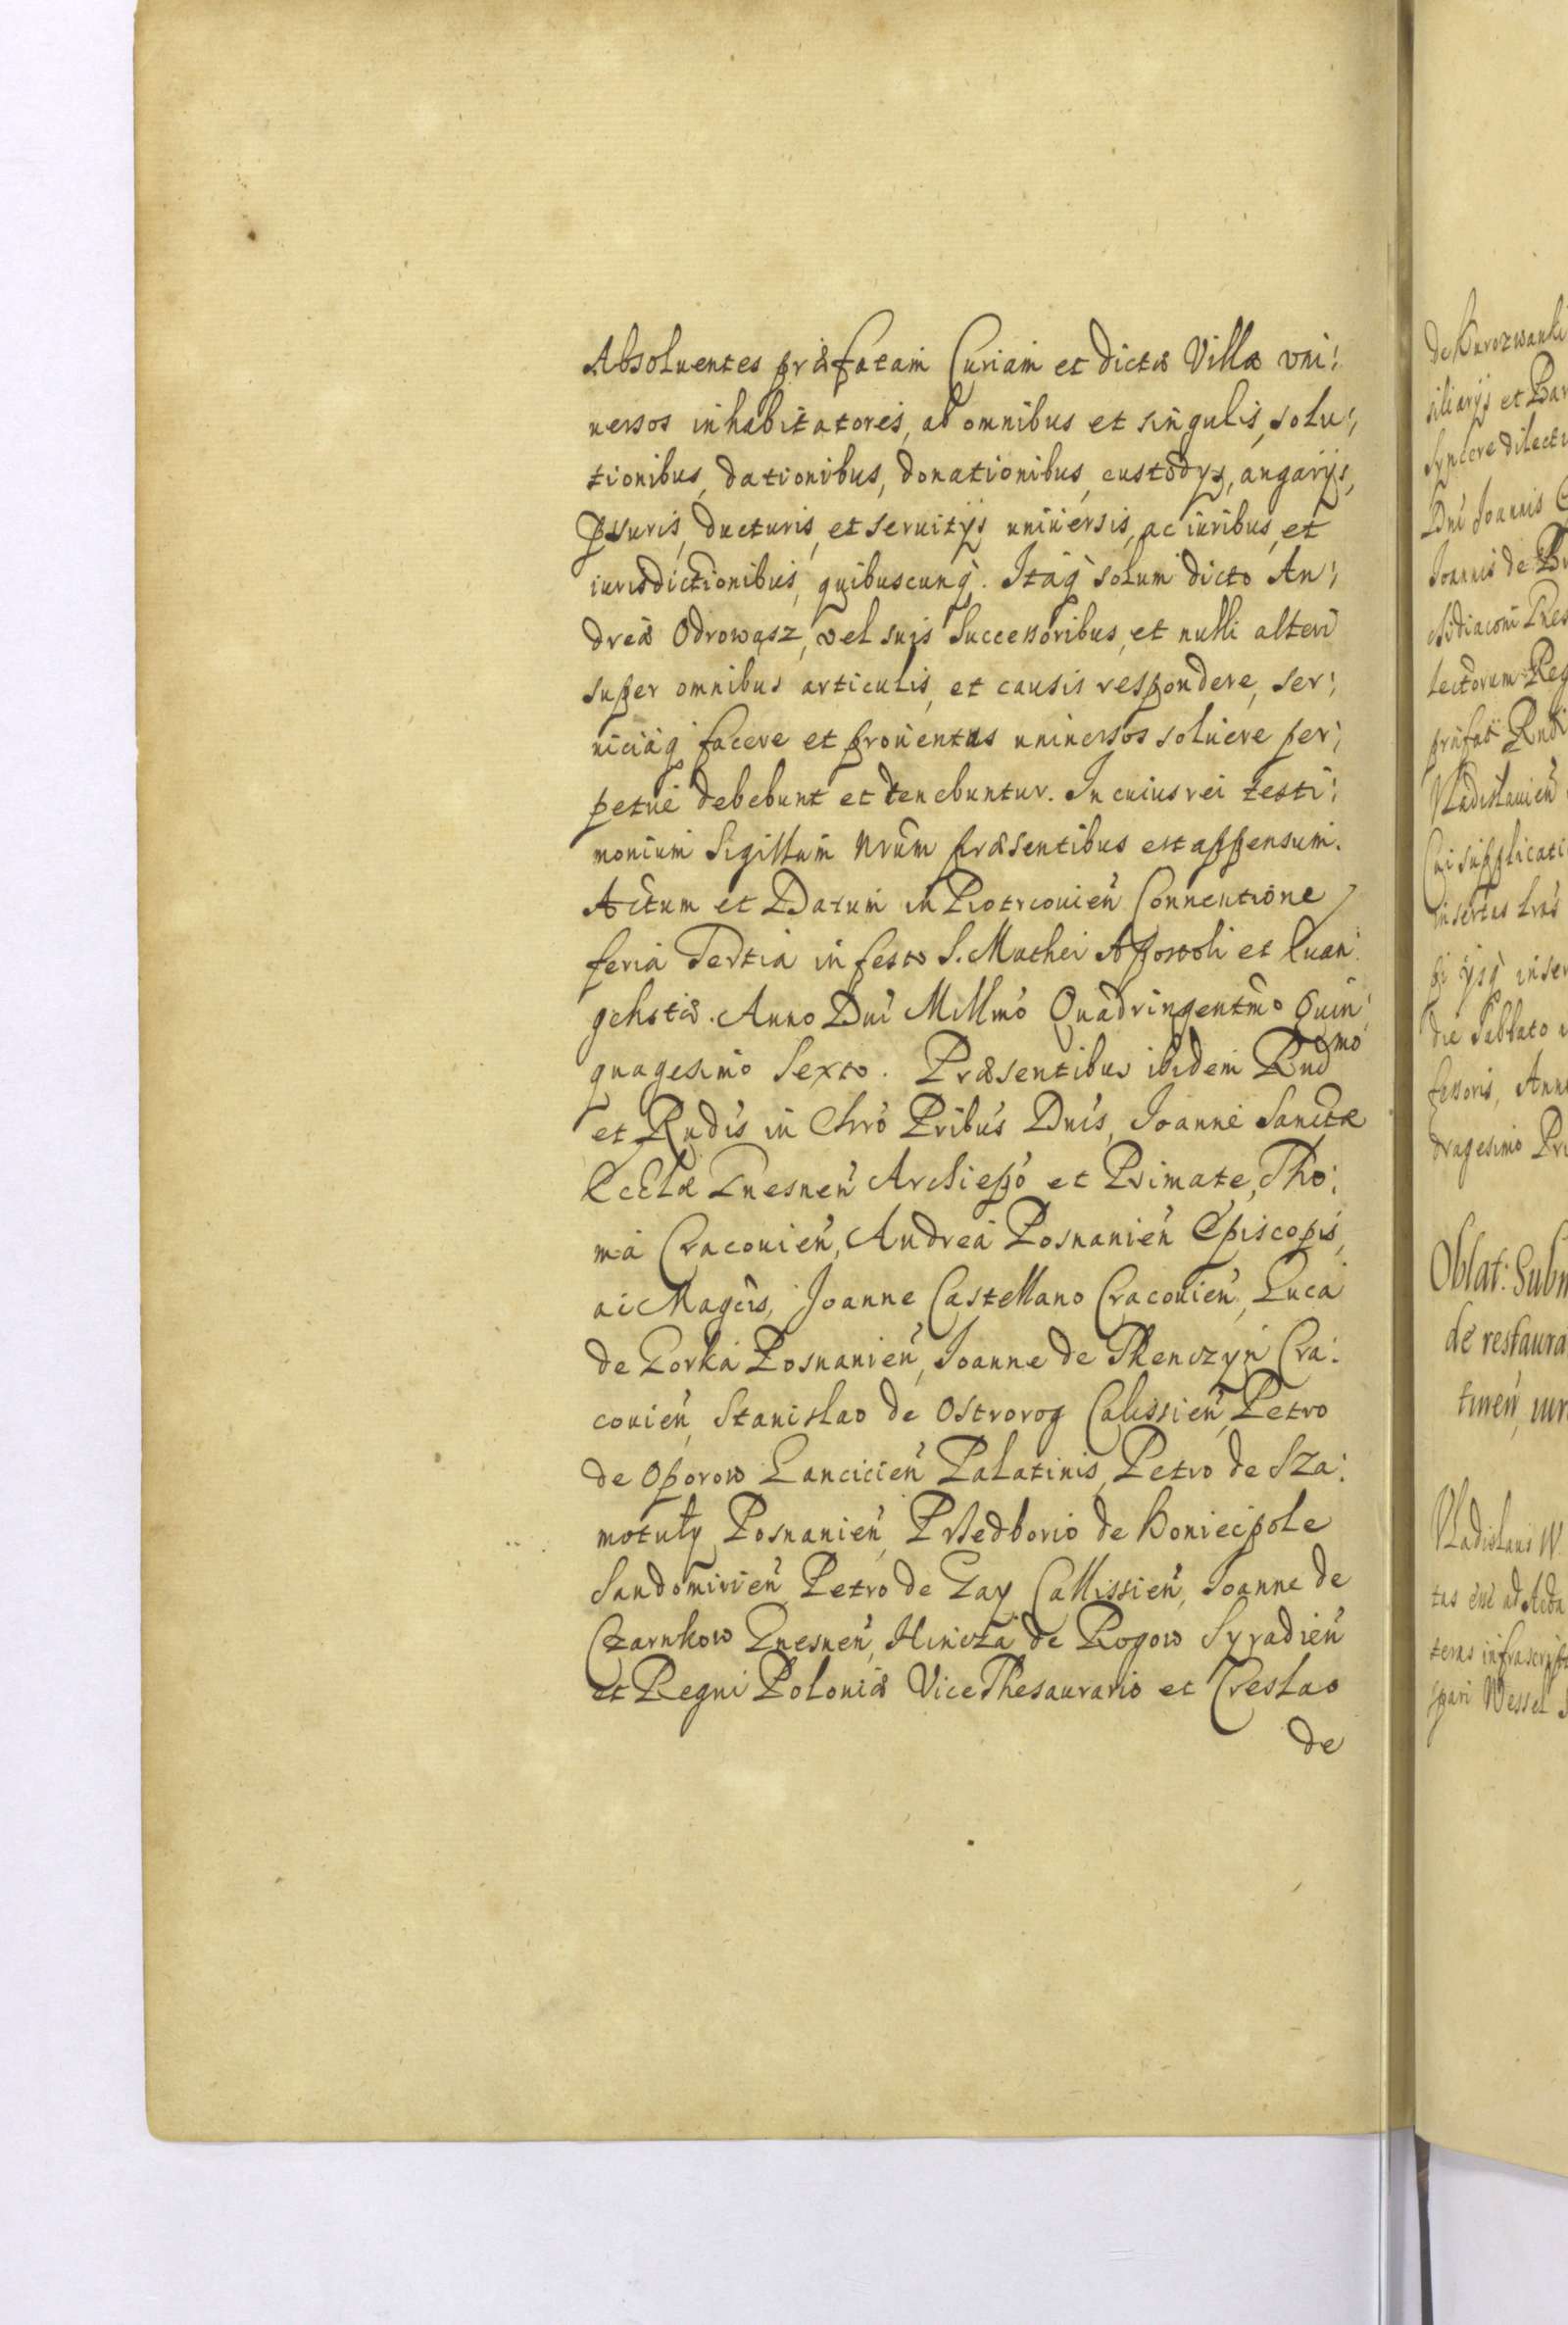 Absoluentes præfatam Curiam et dictæ Villæ vni:
uersos inhabitatores, ab omnibus et singulis, solu:
tionibus, dationibus, donationibus, custodys, angarijs,
psuris, ducturis, et seruitijs uniuersis, ac iuribus, et
iurisdictionibus, quibuscunq̀. Itaq̀ solum dicto An:
dreæ Odrowąsz, vel suis Successoribus, et nulli alteri
super omnibus articulis, et causis respondere, ser:
uiciaq̀ facere et prouentus uniuersos soluere per:
petue debebunt et tenebuntur. In cuius rei testi:
monium Sigillum nrũm præsentibus est appensum.
Actum et Datum in Piotrcouień Conuentione
feria Tertia in festo S. Mathei Apostoli et Euan:
gelistæ. Anno Dni Millmo Quadringentmo Quin:
quagesimo Sexto. Præsentibus ibidem Rndmo
et Rndis in Chro Pribus Dnis, Joanne Sanctæ
Ecclæ Gnesneń Archiepo et Primate, Tho:
ma Cracouień, Andrea Posnanień Episcopis,
ac Magcis, Joanne Castellano Cracouień, Luca
de Gorka Posnanień, Joanne de Thenczyn Cra:
couień, Stanislao de Ostrorog Calissień, Petro
de Oporow Lancicień Palatinis, Petro de Sza:
motuły Posnanień, Przedborio de Koniecpole
Sandomirień, Petro de Gay Callissień, Joanne de
Czarnkow Gnesneń, Hincza de Rogow Syradień
et Regni Poloniæ ViceThesaurario et Creslao
de
de Kurozwanki
siliarijs et Bar
Syncere dilecti
Dni Joannis
Joannis de
chidiaconi Gnes
lectorum Reg
præfat Rndi
Vladislauień
Cui supplicati
insertas lras
die Sabbato
fessoris, Anno
dragesimo Pri
Oblat: Subm
de restaura
Vladislaus W
tas ad Acta
teras infrascript
spari Wessel